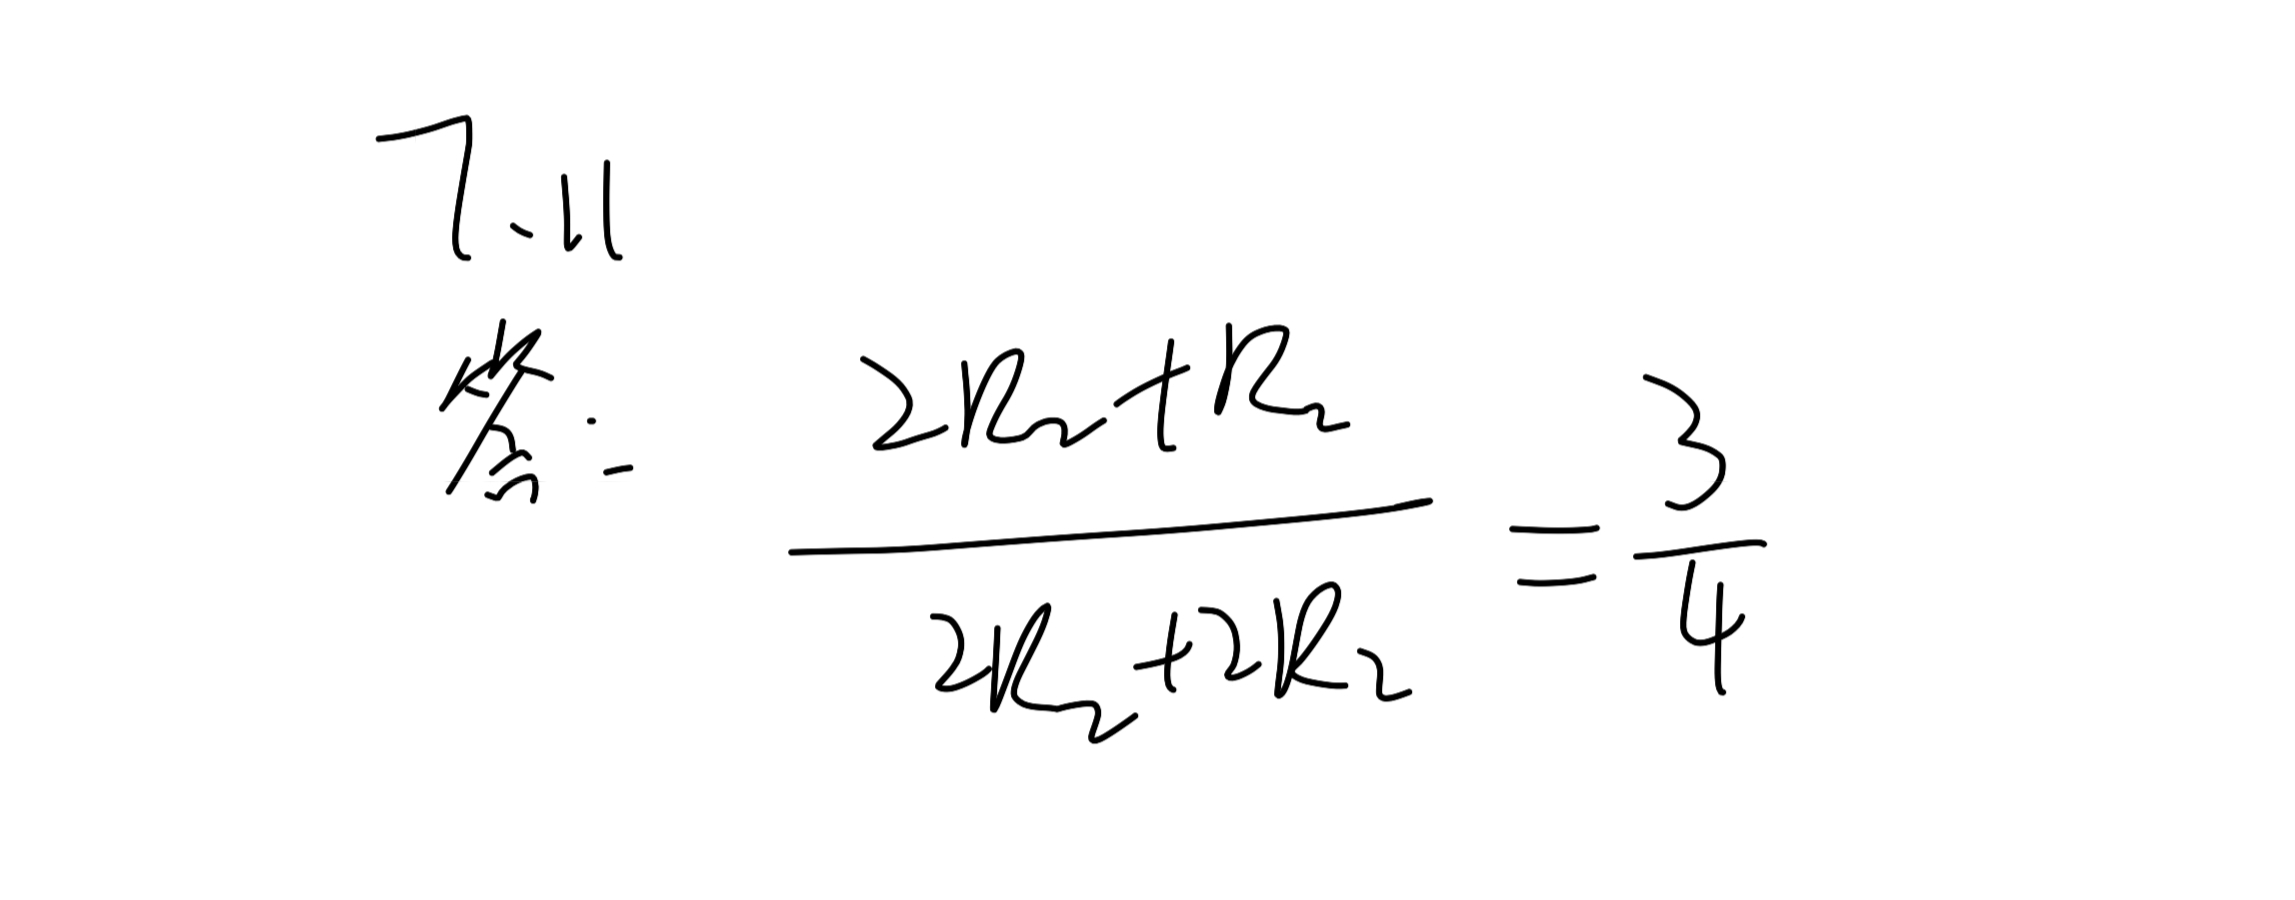 7.11
答: \frac{2R_2+R_2}{2R_2+2R_2} = \frac{3}{4}